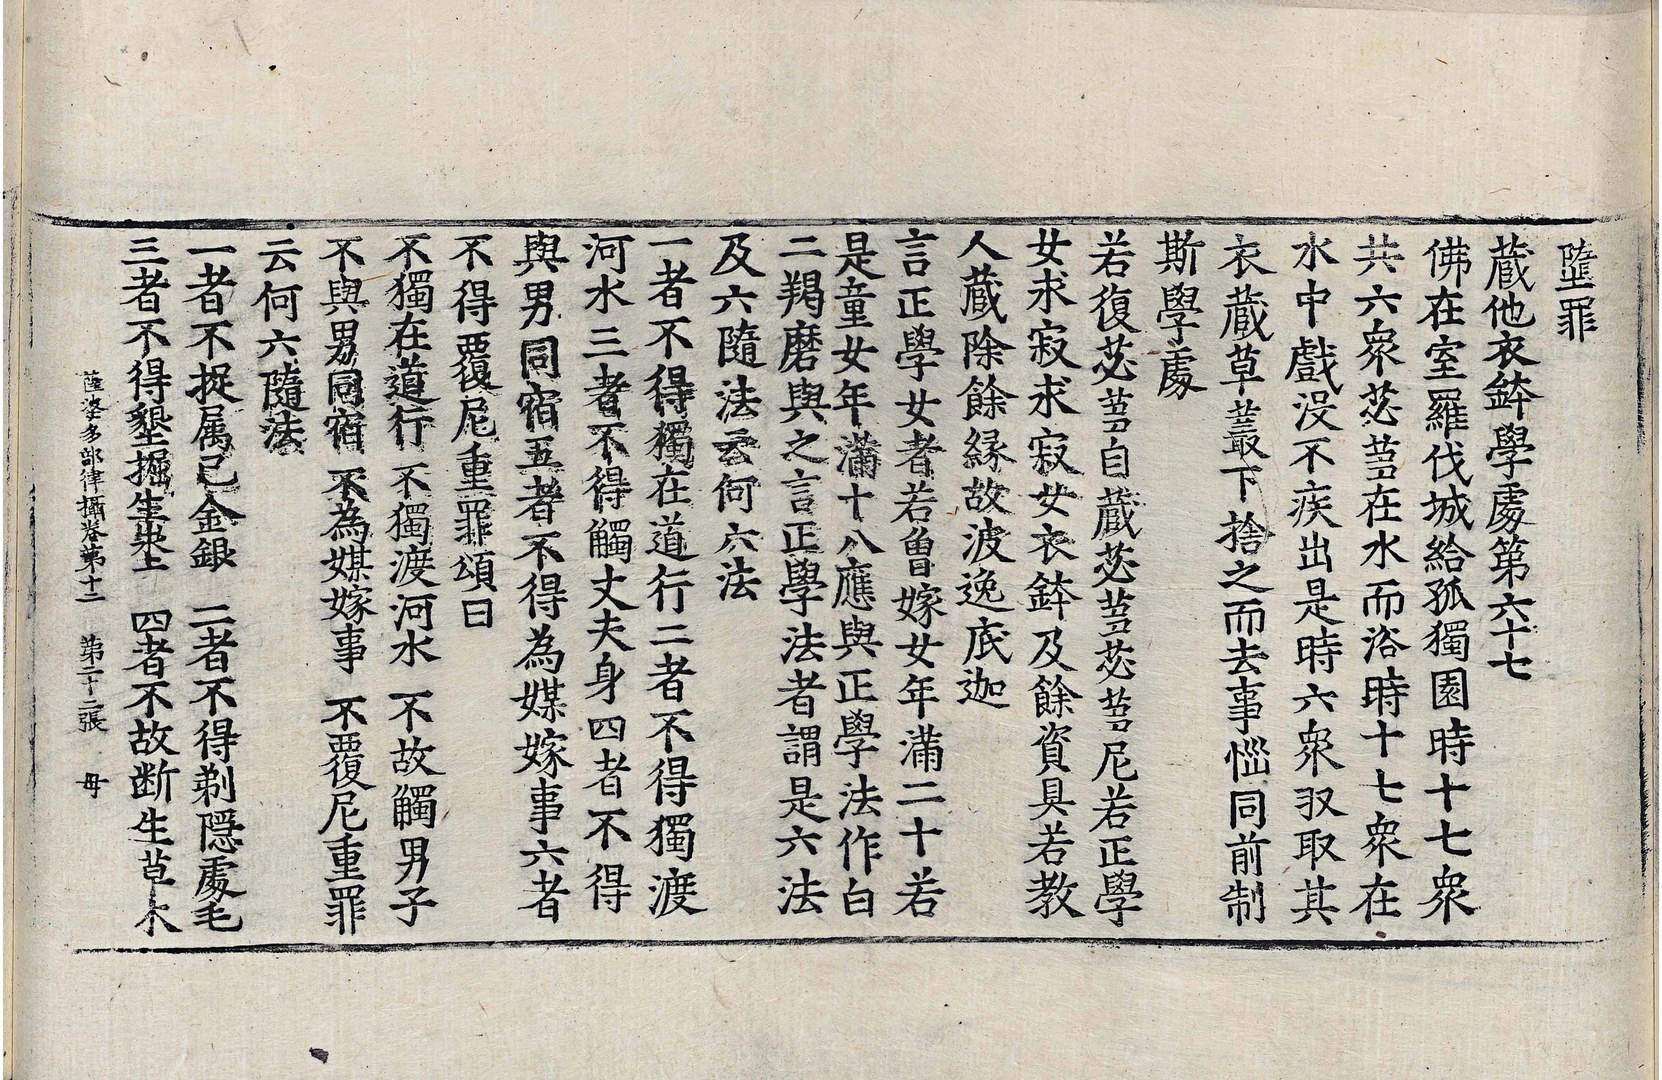 墮罪
藏他衣鉢學處第六十七
佛在室羅伐城給孤獨園時十七衆
共六衆苾芻在水而浴時十七衆在
水中戲没不疾出是時六衆収取其
衣藏草叢下捨之而去事惱同前制
斯學處
若復苾芻自藏苾芻苾芻尼若正學
女求寂求寂女衣鉢及餘資具若教
人藏除餘縁故波逸底迦
言正學女者若曾嫁女年滿二十若
是童女年滿十八應與正學法作白
二羯磨與之言正學法者謂是六法
及六隨法云何六法
一者不得獨在道行二者不得獨渡
河水三者不得觸丈夫身四者不得
與男同宿五者不得為媒嫁事六者
不得覆尼重罪頌曰
不獨在道行　不獨渡河水　不故觸男子
不與男同宿　不為媒嫁事　不覆尼重罪
云何六隨法
一者不捉属己金銀　二者不得剃隱處毛
三者不得墾掘生地　四者不故断生草木
薩婆多部律攝卷第十二　第二十二張　母